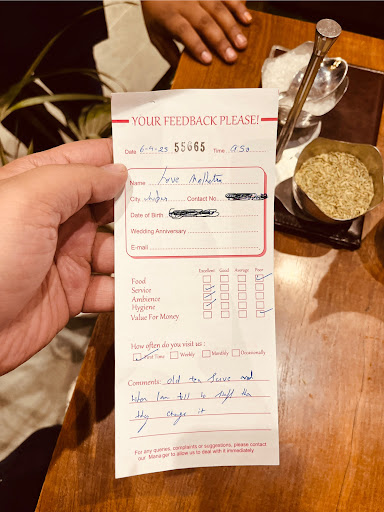 YOUR FEEDBACK PLEASE!
Date 6-9-25 55665 Time 9:50
Name Love Malhotra
City Contact No.
Date of Birth
Wedding Anniversary
E-mail
Excellent Good Average Poor
Food
Service
Ambience
Hygiene
Value For Money
How often do you visit us :
First Time Weekly Monthly Occasionally
Comments: old
it
For any queries, complaints or suggestions, please contact
our Manager to allow us to deal with it immediately